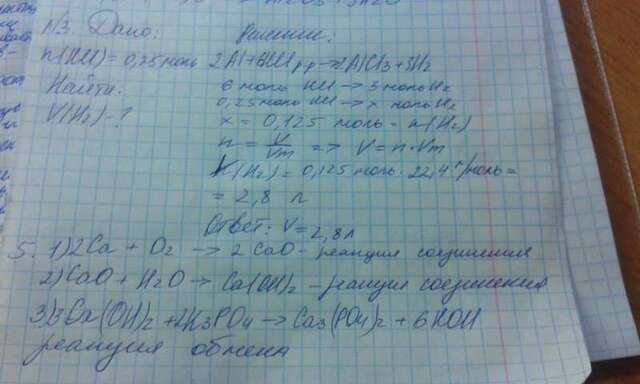 N3. Дано: Решение:
n(HCl) = 0,25моль 2Al+6HCl р-р → 2AlCl3 + 3H2
Найти: 6 моль HCl → 3 моль H2
V(H2) - ? 0,25 моль HCl → x моль H2
x = 0,125 моль = n(H2)
n = V/Vm => V = n·Vm
V(H2) = 0,125 моль · 22,4 л/моль =
= 2,8 л
Ответ: V = 2,8 л
5. 1) 2Ca + O2 → 2 CaO - реакция соединения
2) CaO + H2O → Ca(OH)2 - реакция соединения
3) 3Ca(OH)2 + 2K3PO4 → Ca3(PO4)2 + 6KOH
реакция обмена